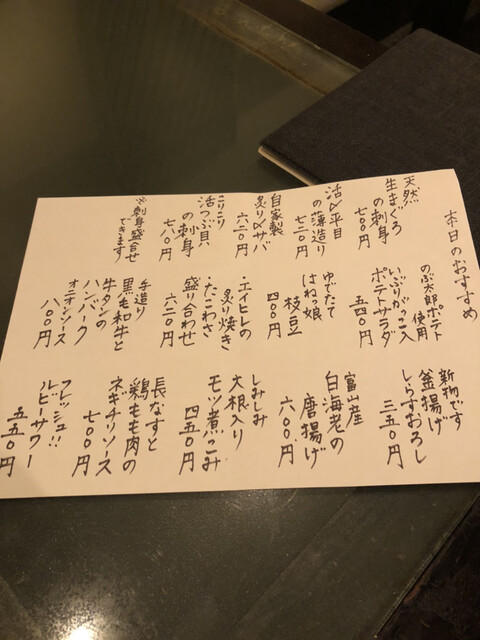 本日のおすすめ
天然
生まぐろ
の刺身
七〇〇円
活〆平目
の薄造り
七二〇円
自家製
炙り〆サバ
六二〇円
コリコリ
活つぶ貝
の刺身
七八〇円
※刺身盛合せ
できます
のぶ太郎ポテト
使用
いぶりがっこ入
ポテトサラダ
五四〇円
ゆでたて
はねっ娘
枝豆
四〇〇円
・エイヒレの
炙り焼き
・たこわさ
盛り合わせ
六二〇円
手造り
黒毛和牛と
牛タンの
ハンバーグ
オニオンソース
八〇〇円
新物です
釜揚げ
しらすおろし
三五〇円
富山産
白海老の
唐揚げ
六〇〇円
しみしみ
大根入り
モツ煮こみ
四五〇円
長なすと
鶏もも肉の
ネギチリソース
七〇〇円
フレッシュ!!
ルビーサワー
五五〇円